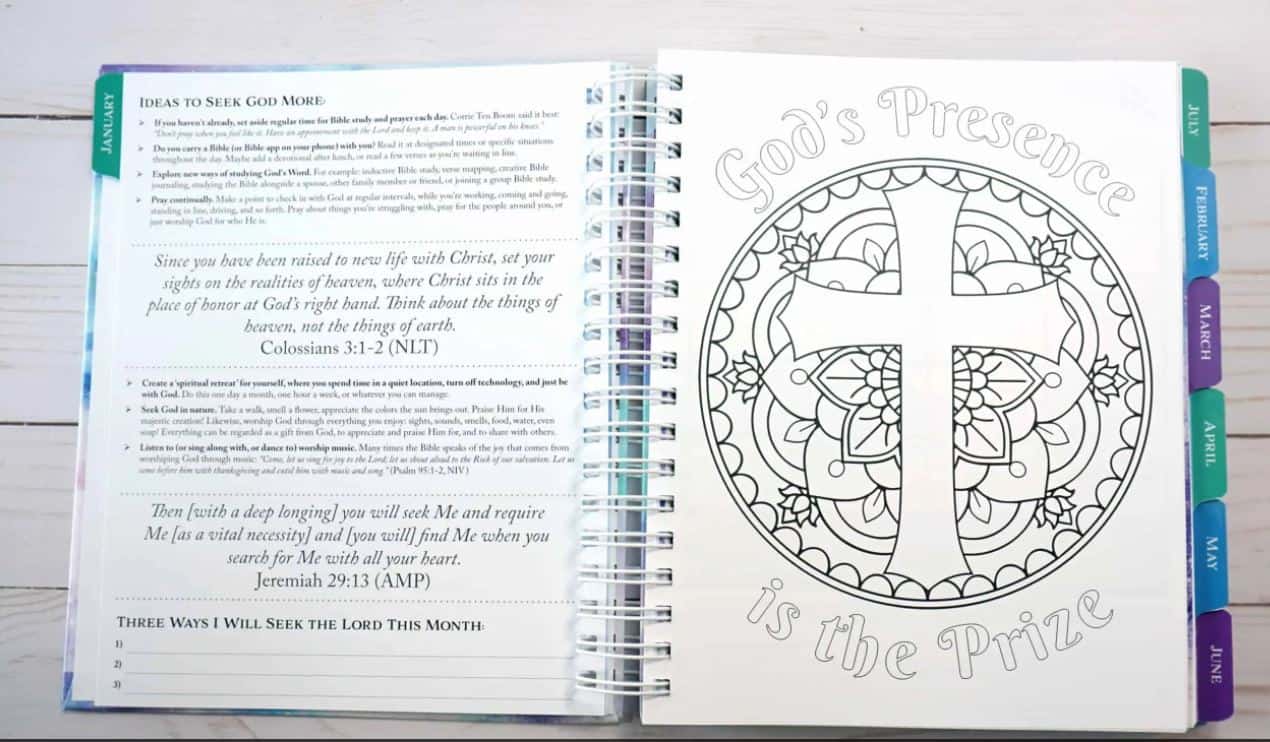 JANUARY
IDEAS TO SEEK GOD MORE:
If you haven't already, set aside regular time for Bible study and prayer each day. Corrie Ten Boom said it best:
"Don't pray when you feel like it. Have an appointment with the Lord and keep it. A man is powerful on his knees."
Do you carry a Bible (or Bible app on your phone) with you? Read it at designated times or specific situations
throughout the day. Maybe add a devotional after lunch, or read a few verses as you're waiting in line.
Explore new ways of studying God's Word. For example: inductive Bible study, verse mapping, creative Bible
journaling, studying the Bible alongside a spouse, other family member or friend, or joining a group Bible study.
Pray continually. Make a point to check in with God at regular intervals, while you're working, coming and going,
standing in line, driving, and so forth. Pray about things you're struggling with, pray for the people around you, or
just worship God for who He is.
Since you have been raised to new life with Christ, set your
sights on the realities of heaven, where Christ sits in the
place of honor at God's right hand. Think about the things of
heaven, not the things of earth.
Colossians 3:1-2 (NLT)
Create a 'spiritual retreat' for yourself, where you spend time in a quiet location, turn off technology, and just be
with God. Do this one day a month, one hour a week, or whatever you can manage.
Seek God in nature. Take a walk, smell a flower, appreciate the colors the sun brings out. Praise Him for His
majestic creation! Likewise, worship God through everything you enjoy: sights, sounds, smells, food, water, even
soap! Everything can be regarded as a gift from God, to appreciate and praise Him for, and to share with others.
Listen to (or sing along with, or dance to) worship music. Many times the Bible speaks of the joy that comes from
worshiping God through music: "Come, let us sing for joy to the Lord; let us shout aloud to the Rock of our salvation. Let us
come before him with thanksgiving and extol him with music and song." (Psalm 95:1-2, NIV)
Then [with a deep longing] you will seek Me and require
Me [as a vital necessity] and [you will] find Me when you
search for Me with all your heart.
Jeremiah 29:13 (AMP)
THREE WAYS I WILL SEEK THE LORD THIS MONTH:
1)
2)
3)
God's Presence
is the Prize
JULY
FEBRUARY
MARCH
APRIL
MAY
JUNE